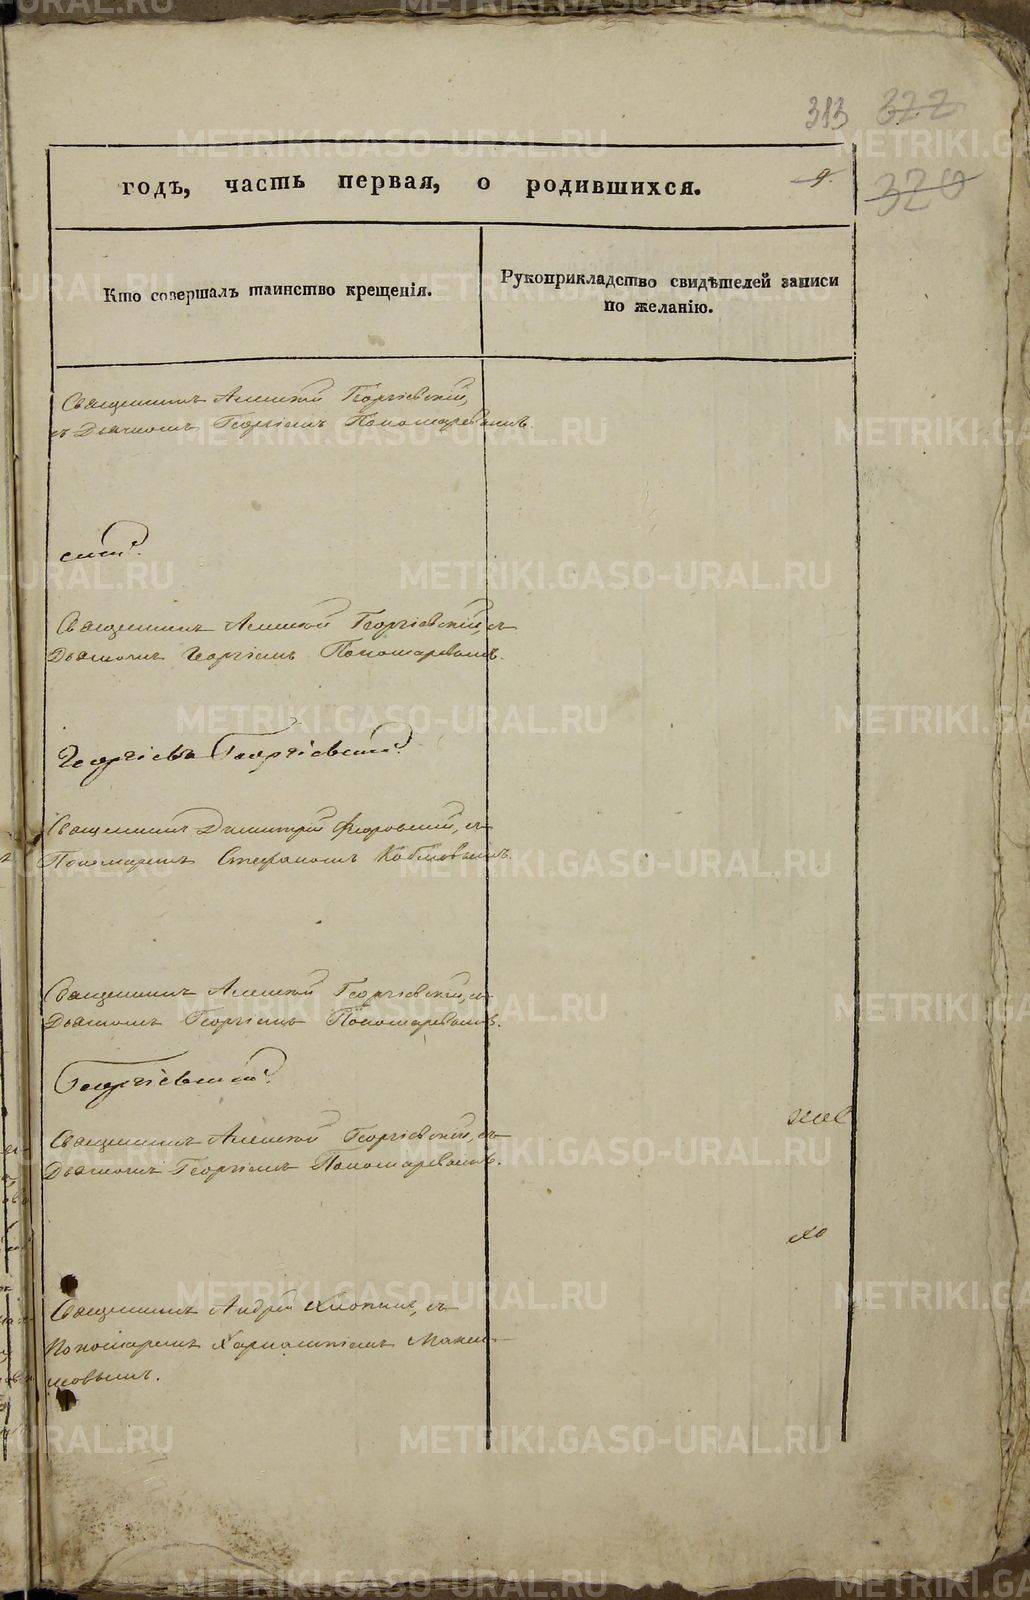 313 322
320
годъ, часть первая, о родившихся. 9.
Кто совершалъ таинство крещенія.
Рукоприкладство свидѣтелей записи
по желанію.
Священникъ Алексѣй Георгіевскій,
съ Дьячкомъ Георгіемъ Пономаревымъ.
Священникъ Алексѣй Георгіевскій, съ
Дьячкомъ Георгіемъ Пономаревымъ.
Георгіевъ Георгіевскій.
Священникъ Димитрій Флоровскій, съ
Пономаремъ Стефаномъ
Священникъ Алексѣй Георгіевскій, съ
Дьячкомъ Георгіемъ Пономаревымъ.
Георгіевскій.
Священникъ Алексѣй Георгіевскій, съ
Дьячкомъ Георгіемъ Пономаревымъ.
Священникъ Андрей съ
Пономаремъ Харлампіемъ Макси-
мовымъ.
METRIKI.GASO-URAL.RU